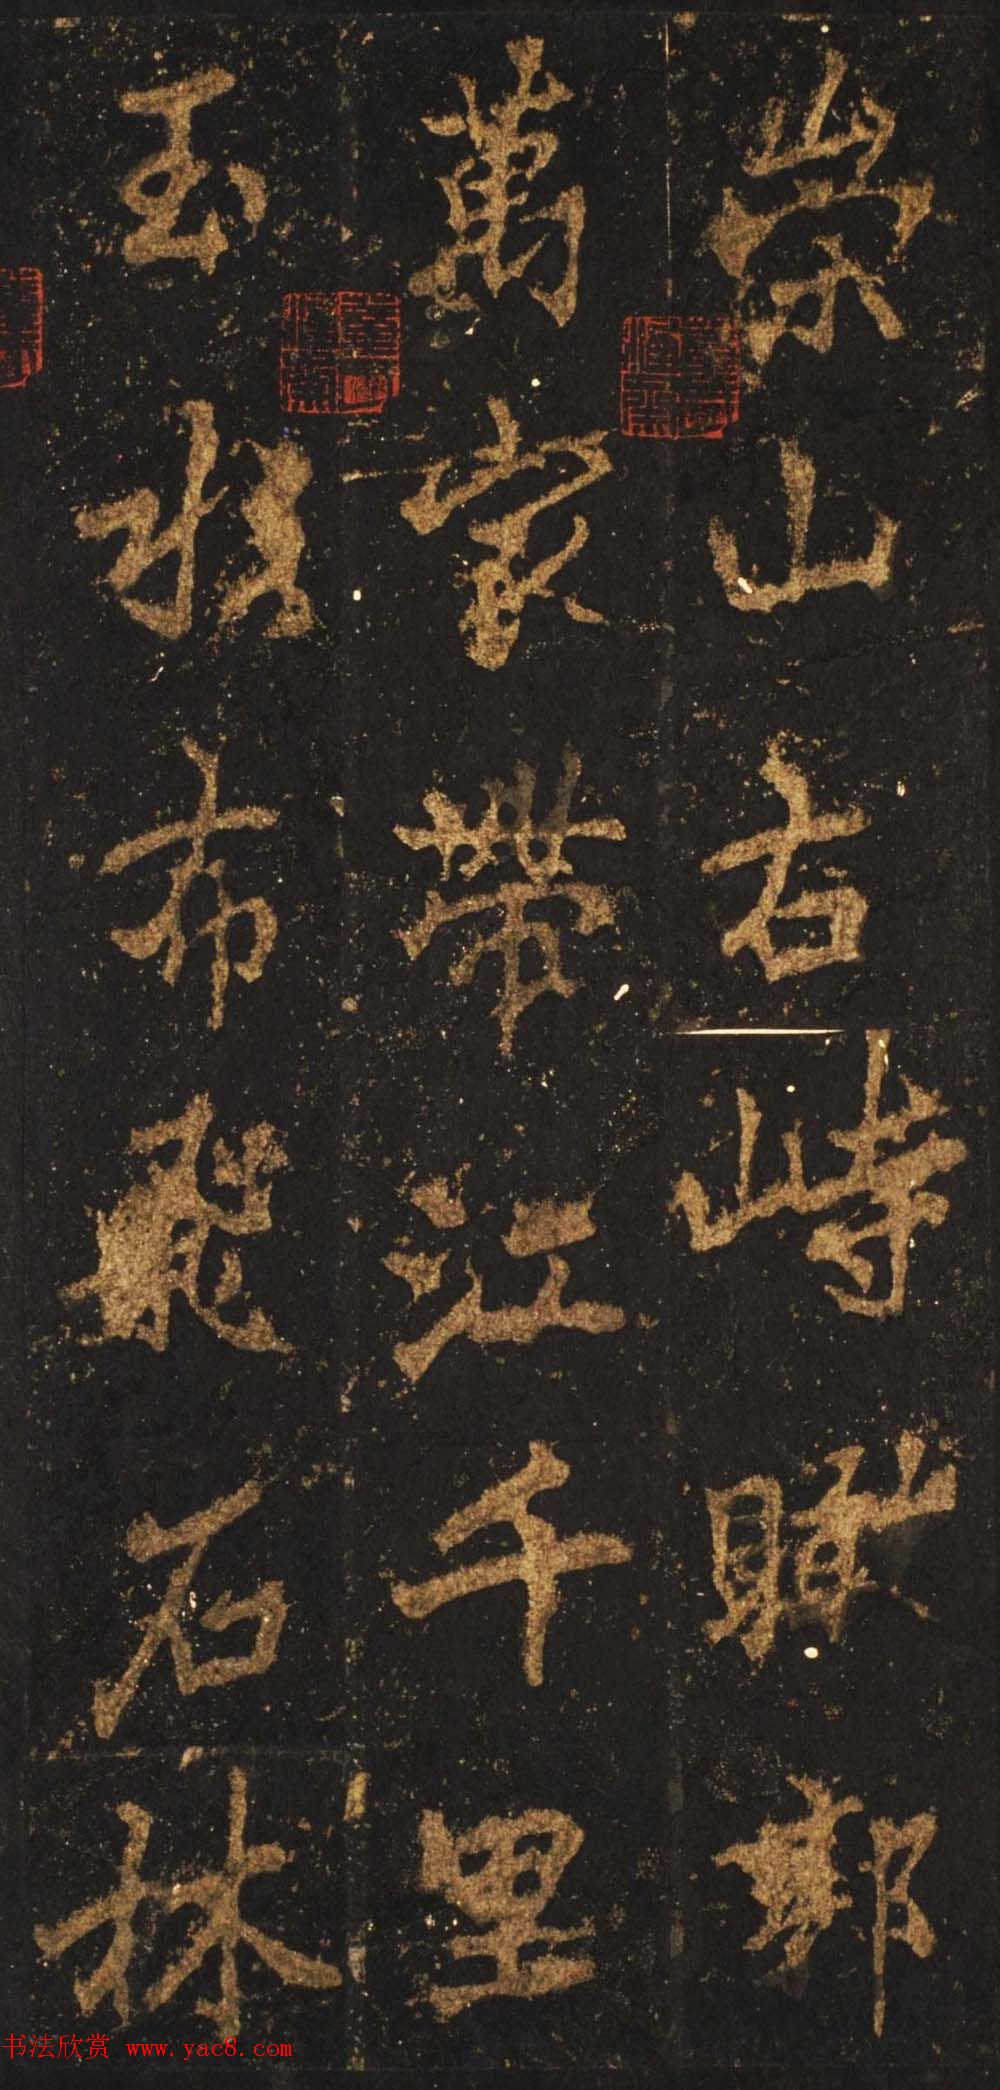 崇山右峙瞰郭
萬家帶江千里
玉水布飛石林
书法欣赏 www.yac8.com